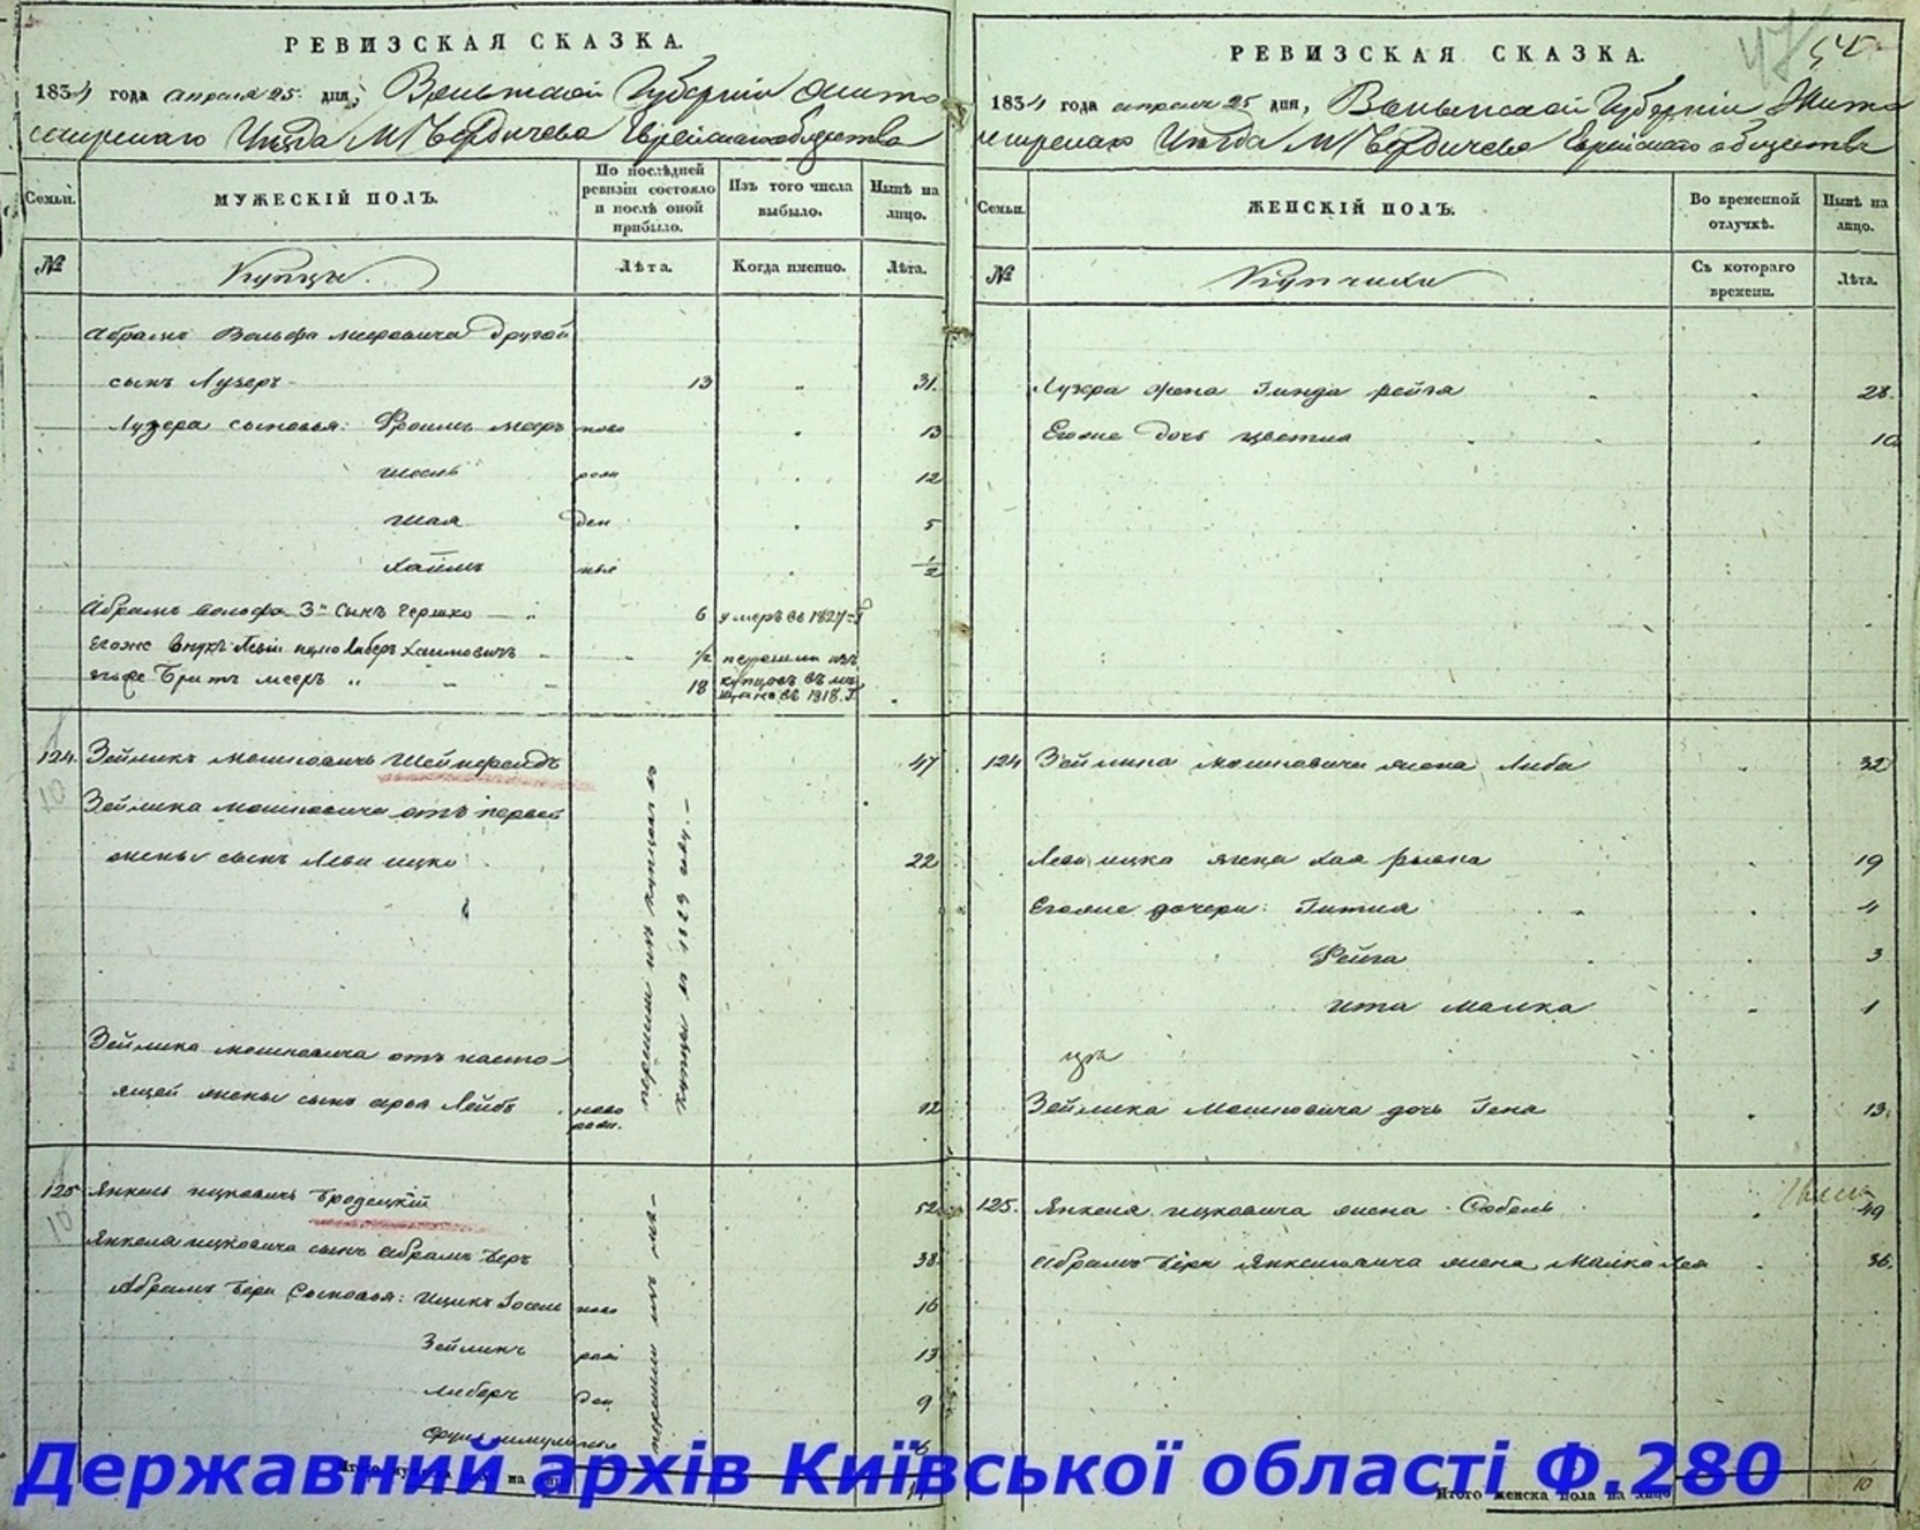 РЕВИЗСКАЯ СКАЗКА.
1834 года апреля 25 дня, Волынской Губернии Жито
мирскаго Уезда М Бердичева Еврейскаго общества
Семьи.
МУЖЕСКІЙ ПОЛЪ.
По послѣдней ревизіи состояло и послѣ оной прибыло.
Изъ того числа выбыло.
Нынѣ на лицо.
№
Купцы.
Лѣта.
Когда именно.
Лѣта.
Абрамъ Вольфа Мееровича другой
сынъ Лузеръ 13 " 31.
Лузера сыновья: Фроимъ Меер ново 13
рож 12
Шая ден 5
Хаимъ ные 1/2
Абрамъ Вольфа 3й сынъ Гершко 6 умеръ въ 1827 г
Егоже внукъ Либеръ Хаимовичъ 1/2 перешли изъ
Мееръ 18 купцовъ въ мѣщане въ 1818. Г.
124. Зейликъ Мошковичъ Шейнфельдъ 47
Зейлика Мошковича отъ первой
жены сынъ Леви Ицко 22
перешли изъ купцы въ 1829 году.
Зейлика Мошковича отъ насто-
ящей жены сынъ Арья Лейбъ ново рож. 12
125 Янкель Ицковичъ Бродецкій 52
Янкеля Ицковича сынъ Абрамъ Беръ 38
Абрамъ Бера сыновья: Ицикъ Іосель ново 16
Зейликъ рож 13
Либеръ ден 9
Срул ные 6
перешли изъ мѣ-
Итого
РЕВИЗСКАЯ СКАЗКА.
1834 года апреля 25 дня, Волынской Губернии Жито
мирскаго Уезда М Бердичева Еврейскаго общества
Семьи.
ЖЕНСКІЙ ПОЛЪ.
Во временной отлучкѣ.
Нынѣ на лицо.
№
Купчихи
Съ котораго времени.
Лѣта.
Лузера жена Гинда Рейза 28.
Егоже дочь Цветля 10
124 Зейлика Мошковича жена Либа 32
Леви Ицка жена Хая Рывка 19
Егоже дочери: Гитля 4
Фейга 3
Ита Малка 1
Зейлика Мошковича дочь Гена 13.
125. Янкеля Ицковича жена Собель 49
Абрамъ Бера Янкелевича жена Малка Лея 36.
Итого женска пола на лицо 10
Державний архів Київської області Ф.280